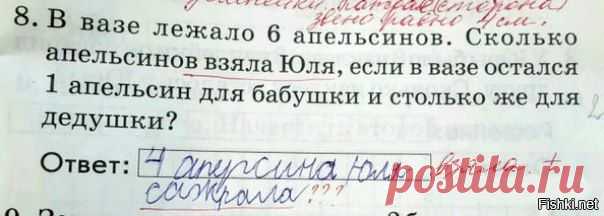 звено равно 4 см.
8. В вазе лежало 6 апельсинов. Сколько
апельсинов взяла Юля, если в вазе остался
1 апельсин для бабушки и столько же для
дедушки?
Ответ: 4 апурсина Юля взяла +
сажрала???
postila.ru
Fishki.net